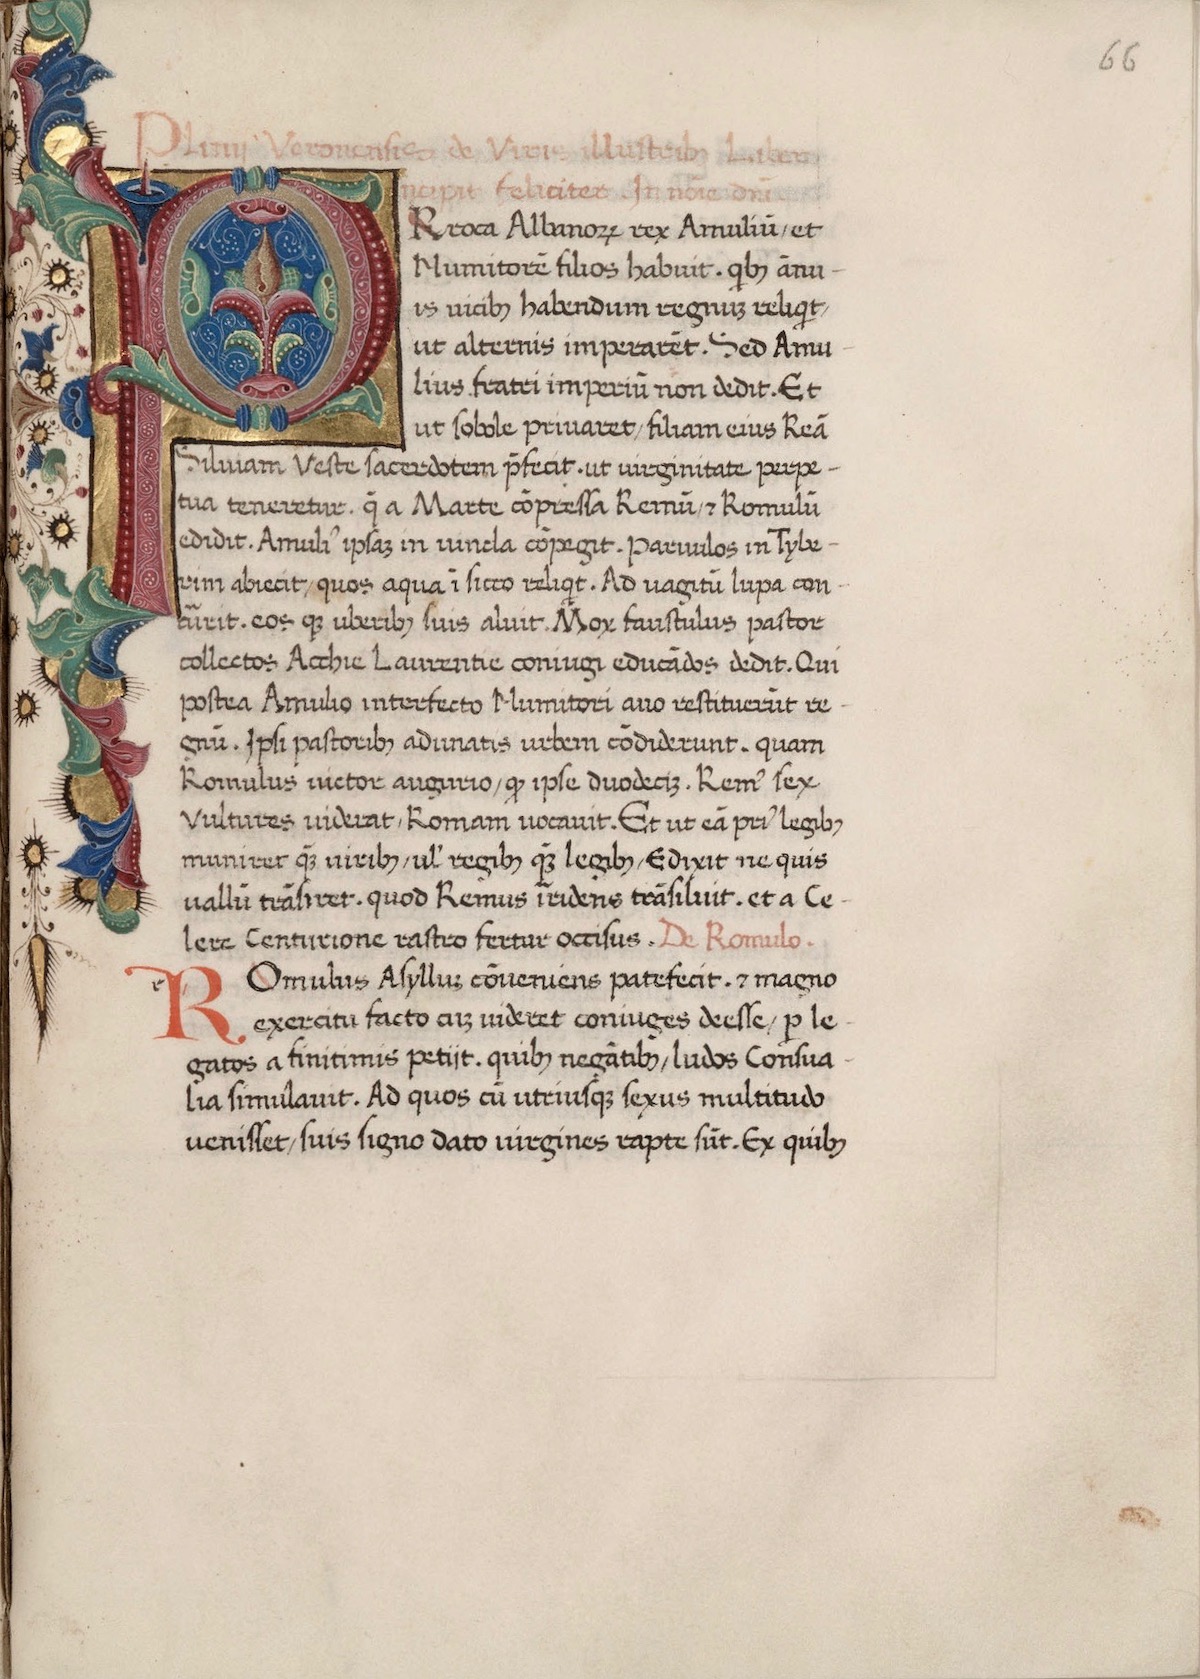 66
Plinij Veronensis de Viris illustrib₉ Liber
incipit feliciter In nōie dnī
PRroca Albanoꝝ rex Amuliū / et
Numitorē filios habuit . qb₉ ānu -
is uicib₉ habendum regnuꝫ reliqt /
ut alternis imperarēt . Sed Amu -
lius fratri imperiū non dedit . Et
ut sobole priuaret / filiam eius Reā
Siluiam Veste sacerdotem p̄fecit . ut uirginitate perpe -
tua teneretur . q̄ a Marte cōpressa Remū / ⁊ Romulū
edidit . Amuliꝰ ipsaꝫ in uincla cōpegit . Paruulos in Tybe -
rim abiecit / quos aqua ī sicco reliqt . Ad uagitū lupa con -
cūrit . eos qꝫ uberib₉ suis aluit . Mox faustulus pastor
collectos Acchie Laurentie coniugi educādos dedit . Qui
postea Amulio interfecto Numitori auo restituerūt re -
gnū . Ipsi pastorib₉ adunatis urbem cōdiderunt . quam
Romulus uictor augurio / ꝙ ipse duodeciꝫ . Remꝰ sex
Vultures uiderat / Romam uocauit . Et ut eā priꝰ legib₉
muniret qꝫ̄ uirib₉ / ul' regib₉ qꝫ̄ legib₉ / Edixit ne quis
uallū trāsiret . quod Remus īridens trāsiluit . et a Ce -
lere Centurione rastro fertur occisus . De Romulo .
r ROmulus Asylluꝫ cōueniens patefecit . ⁊ magno
exercitu facto cuꝫ uideret coniuges deesse / ꝑ le -
gatos a finitimis petijt . quib₉ negātib₉ / ludos Consua -
lia simulauit . Ad quos cū utriusqꝫ sexus multitudo
uenisset / suis signo dato uirgines rapte sūt . Ex quib₉